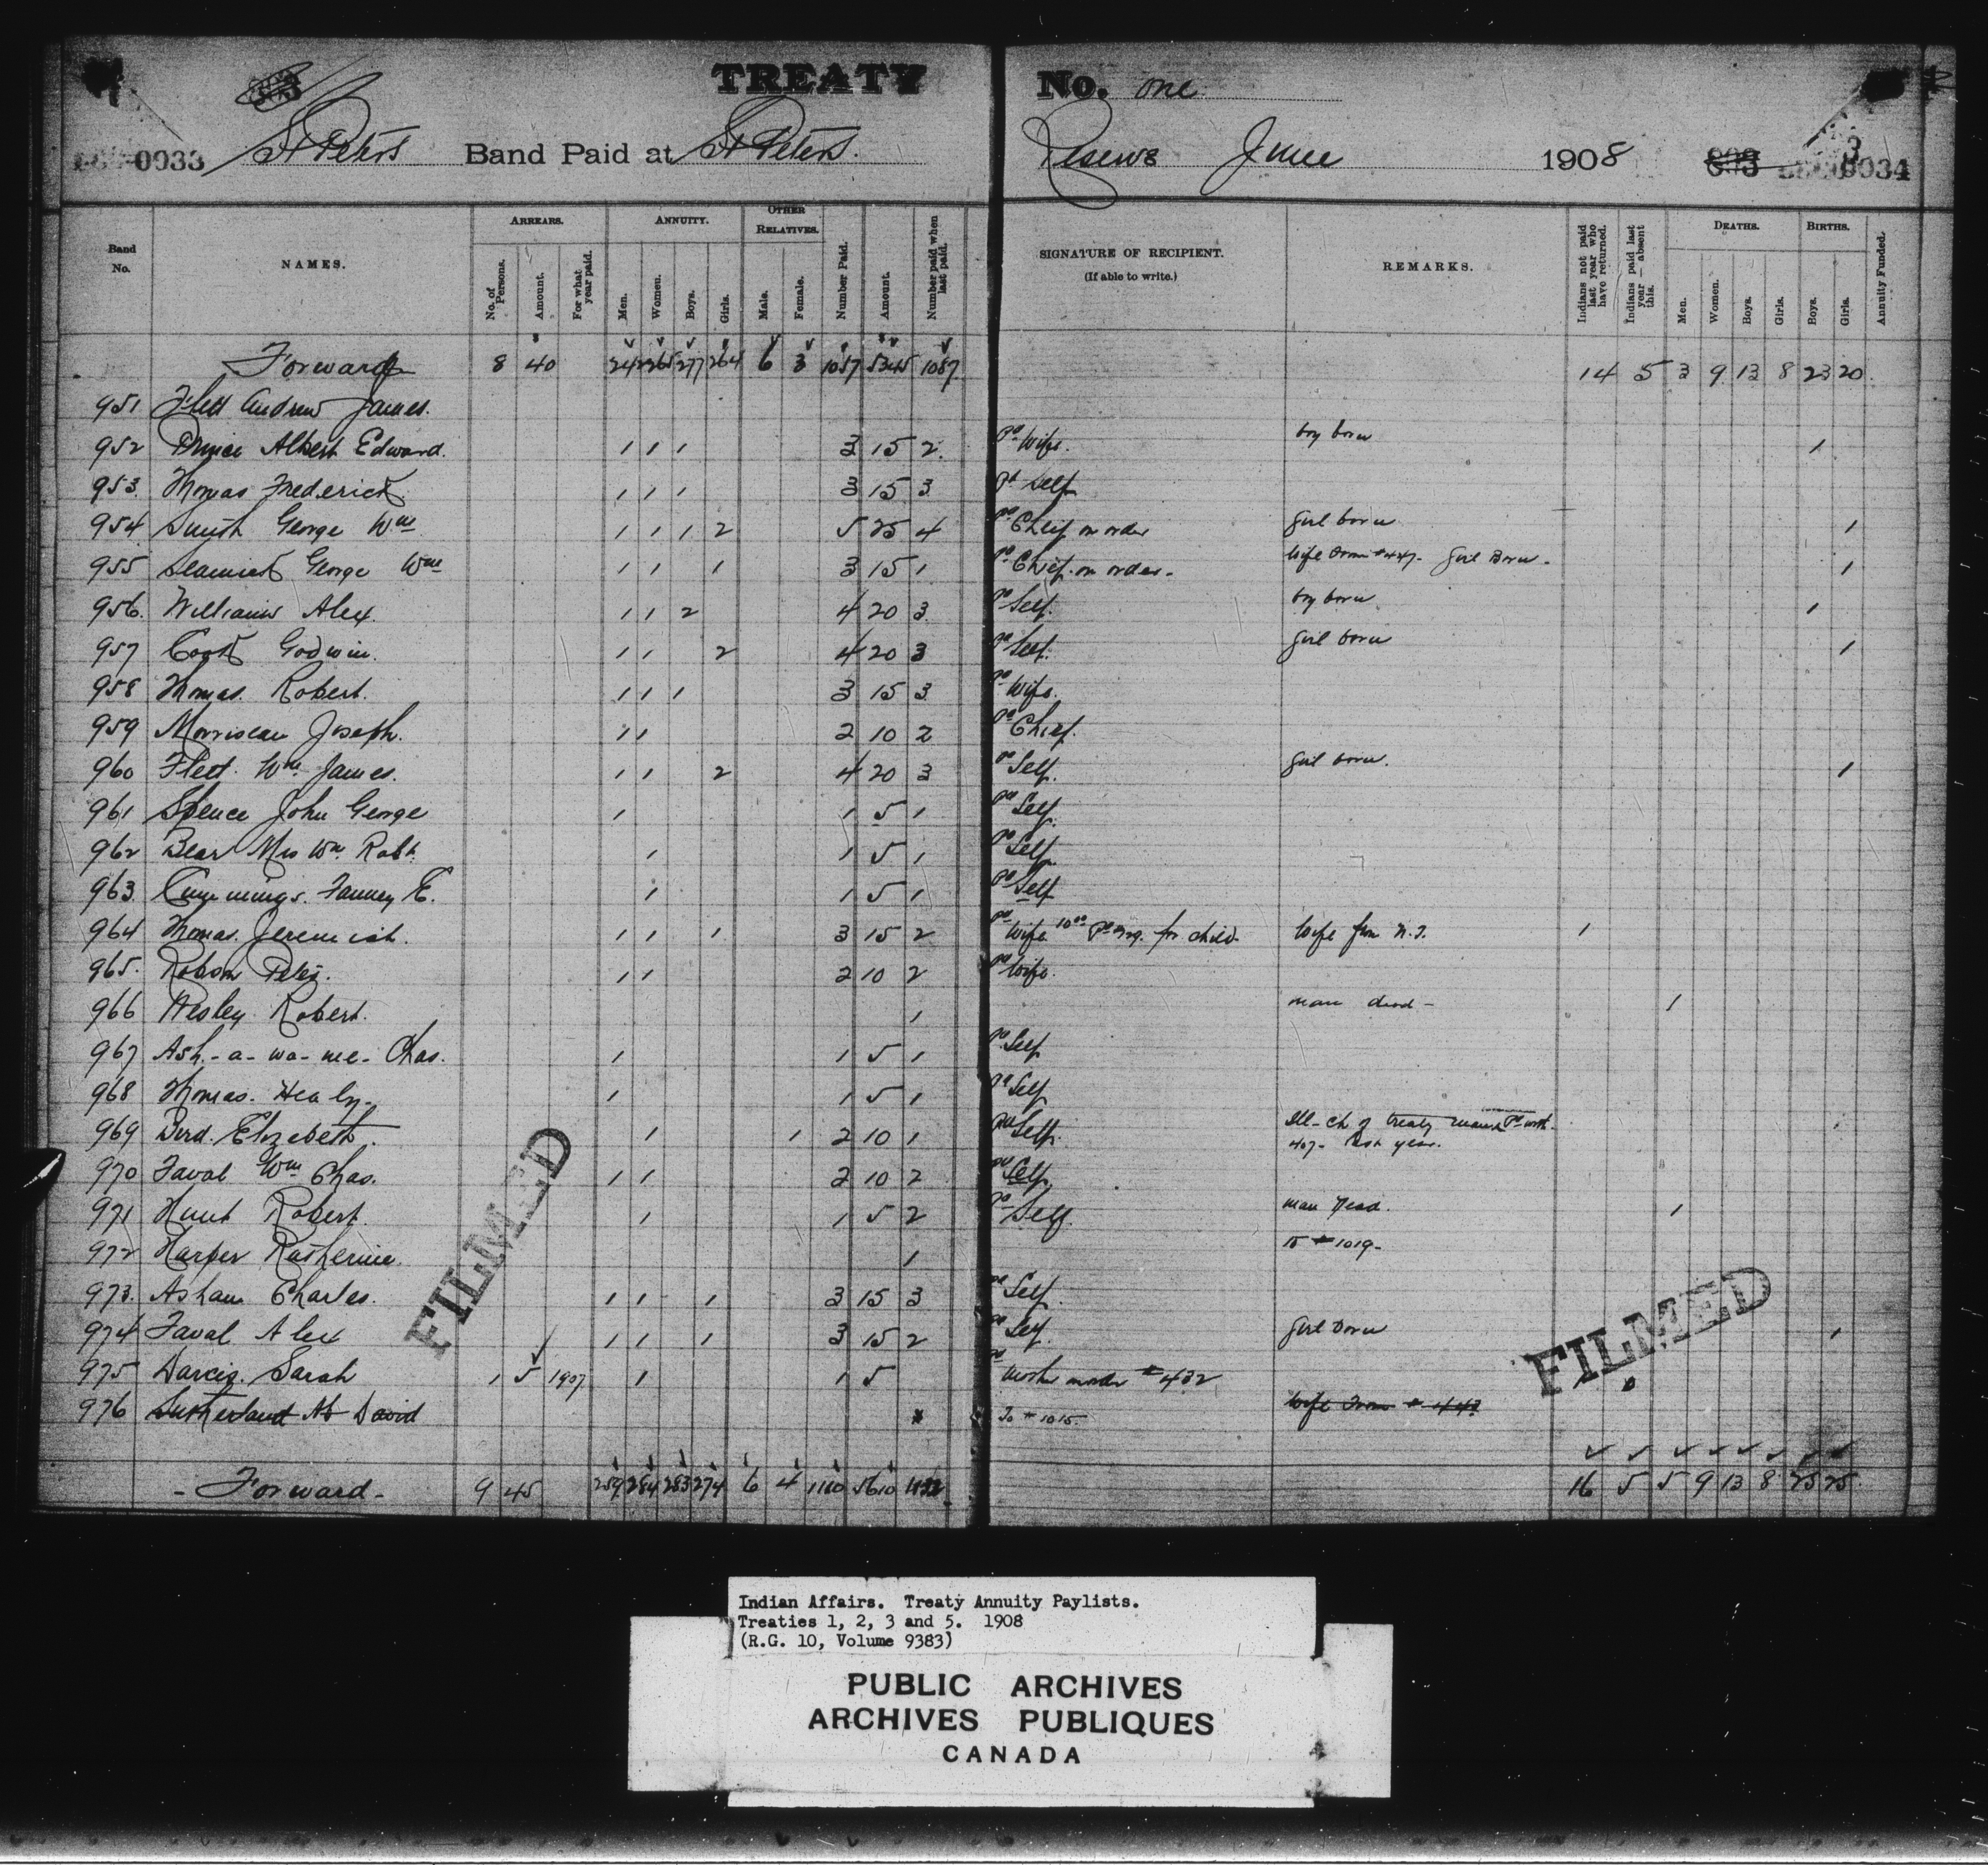 TREATY No. One
0033 St Peters Band Paid at St Peters. Reserve June 1908 3 0034
Band No. NAMES. ARREARS. No. of Persons. Amount. For what year paid. ANNUITY. Men. Women. Boys. Girls. OTHER RELATIVES. Male. Female. Number Paid. Amount. Number paid when last paid. SIGNATURE OF RECIPIENT. (If able to write.) REMARKS. Indians not paid last year who have returned. Indians paid last year — absent this. DEATHS. Men. Women. Boys. Girls. BIRTHS. Boys. Girls. Annuity Funded.
Forward 8 40 242 265 277 264 6 3 1057 5345 1087 14 5 3 9 13 8 23 20
951 Flett Andrew James.
952 Prince Albert Edward. 1 1 1 3 15 2. Pd Wife. boy born 1
953. Thomas Frederick 1 1 1 3 15 3 Pd Self
954. Smith George Wm 1 1 1 2 5 25 4 Pd Chief on order girl born 1
955 George Wm 1 1 1 3 15 1 Pd Chief on order. Wife from #447. Girl Born. 1
956. Williams Alex. 1 1 2 4 20 3 Pd Self. boy born 1
957 Cook Godwin. 1 1 2 4 20 3 Pd Self. girl born 1
958 Thomas. Robert. 1 1 1 3 15 3 Pd Wife.
959 Morriseau Joseph. 1 1 2 10 2 Pd Chief.
960 Flett. Wm James. 1 1 2 4 20 3 Pd Self. girl born. 1
961 Spence John George 1 1 5 1 Pd Self.
962 Bear Mrs Wm. Robt. 1 1 5 1 Pd Self
963. Cummings. Fanney E. 1 1 5 1 Pd Self
964 Thomas. Jeremiah. 1 1 1 3 15 2 Pd Wife 10.00 for child. Wife from N.T. 1
965. Robson Peter. 1 1 2 10 2 Pd Wife.
966 Wesley Robert. 1 man dead - 1
967 Ash-a-wa-me- Chas. 1 1 5 1 Pd Self
968 Thomas. Henley. 1 1 5 1 Pd Self
969 Bird. Elizebeth. 1 1 2 10 1 Pd Self. Ill-ch of treaty Pd with
407- last year.
970 Faval Wm Chas. 1 1 2 10 2 Pd Self,
971 Hunt Robert. 1 1 5 2 Pd Self. man Dead. 1
972 Harper Katherine. 1 to #1019-
973. Asham Charles. 1 1 1 3 15 3 Pd Self.
974 Faval Alex 1 1 1 3 15 2 Pd Self. girl Born 1
975 Darcis. Sarah 1 5 1907 1 1 5 Pd Mother under #432
976 Sutherland At David To #1015. Wife From # 443
- Forward - 9 45 259 284 283 274 6 4 1110 5610 16 5 5 9 13 8 25 25
FILMED
FILMED
Indian Affairs. Treaty Annuity Paylists.
Treaties 1, 2, 3 and 5. 1908
(R.G. 10, Volume 9383)
PUBLIC ARCHIVES
ARCHIVES PUBLIQUES
CANADA